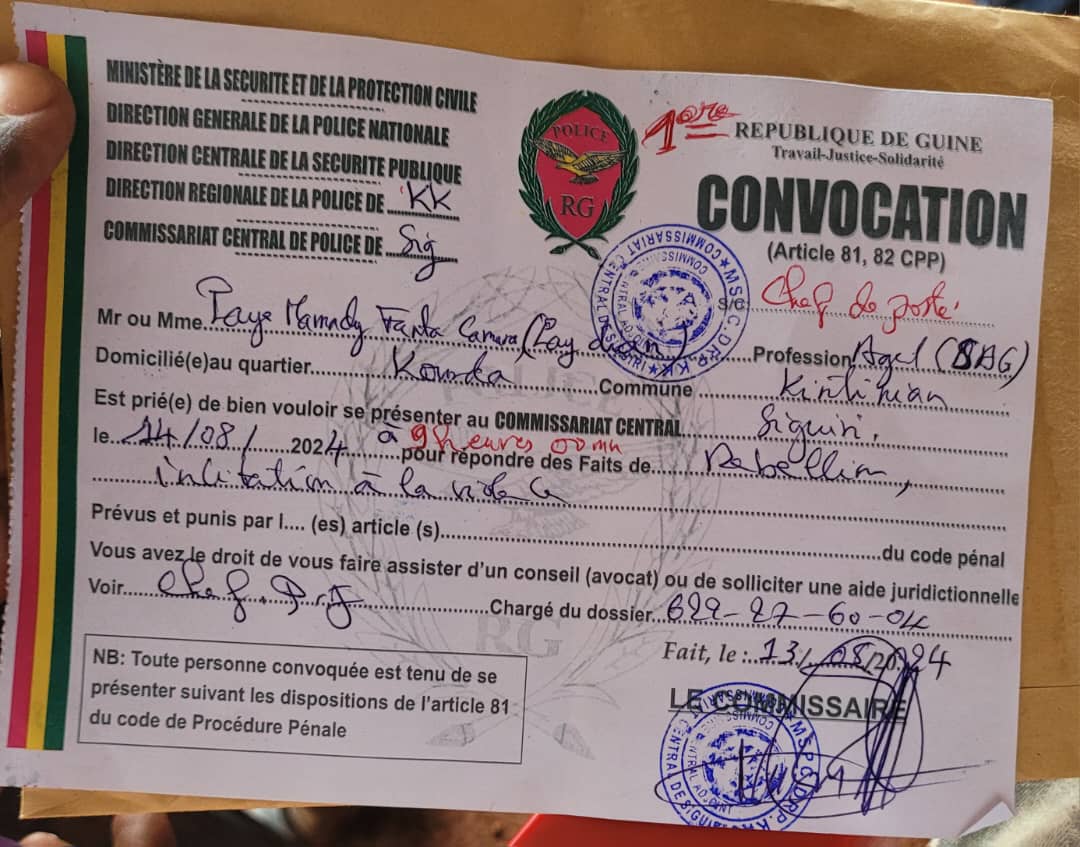 MINISTÈRE DE LA SECURITE ET DE LA PROTECTION CIVILE
DIRECTION GENERALE DE LA POLICE NATIONALE
DIRECTION CENTRALE DE LA SECURITE PUBLIQUE
DIRECTION REGIONALE DE LA POLICE DE KK
COMMISSARIAT CENTRAL DE POLICE DE Sig
POLICE
RG
1ère
REPUBLIQUE DE GUINE
Travail-Justice-Solidarité
CONVOCATION
(Article 81, 82 CPP)
S/C: Chef de poste
Mr ou Mme Mamady Fanta Camara Profession
Domicilié(e)au quartier Commune Kintinian
Est prié(e) de bien vouloir se présenter au COMMISSARIAT CENTRAL Siguiri,
le 14/08/2024 à 9heures 00mn pour répondre des Faits de Rebellion,
incitation à la violence
Prévus et punis par l.... (es) article (s) du code pénal
Vous avez le droit de vous faire assister d'un conseil (avocat) ou de solliciter une aide juridictionnelle
Voir Chef P.J Chargé du dossier 629-27-60-04
Fait, le : 13/08/2024
LE COMMISSAIRE
NB: Toute personne convoquée est tenu de se
présenter suivant les dispositions de l'article 81
du code de Procédure Pénale
RG